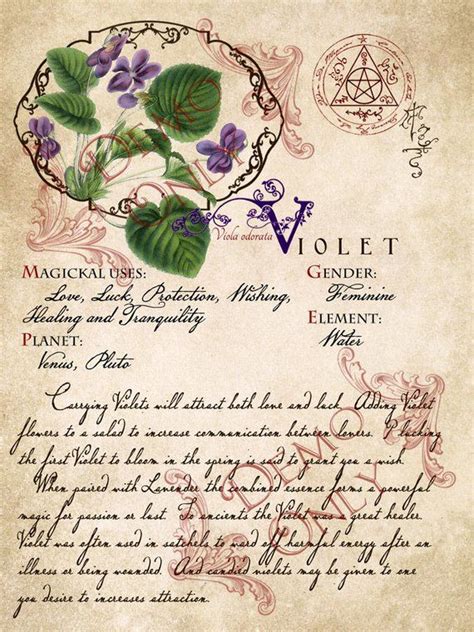 DEMO ONLY
Viola odorata
VIOLET
MAGICKAL USES:
Love, Luck, Protection, Wishing,
Healing and Tranquility
PLANET:
Venus, Pluto
GENDER:
Feminine
ELEMENT:
Water
Carrying Violets will attract both love and luck. Adding Violet
flowers to a salad to increase communication between lovers. Plucking
the first Violet to bloom in the spring is said to grant you a wish.
When paired with Lavender the combined essence forms a powerful
magic for passion or lust. To ancients the Violet was a great healer.
Violet was often used in satchels to ward off harmful energy after an
illness or being wounded. And candied violets may be given to one
you desire to increases attraction.
DEMO ONLY